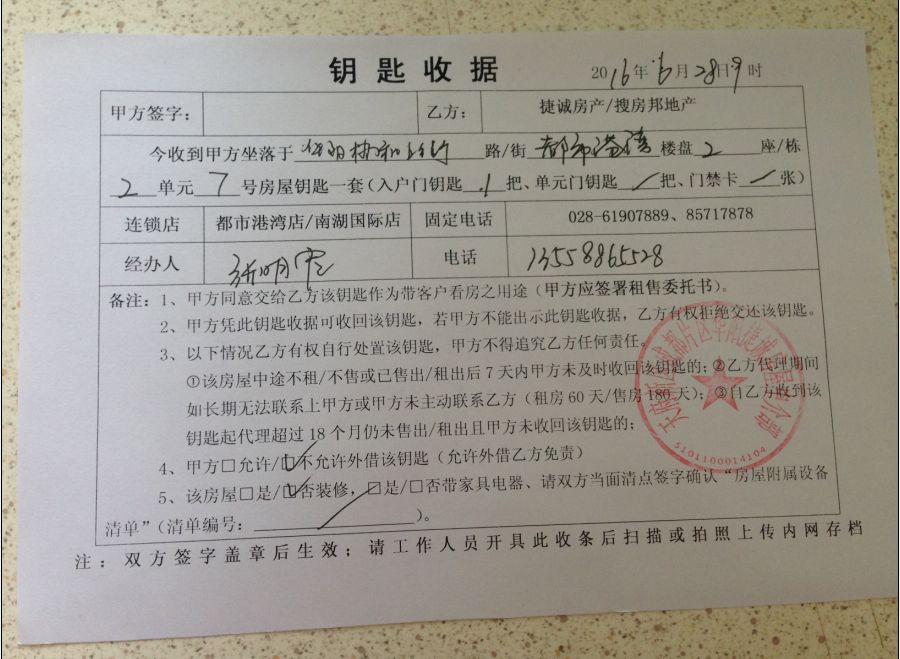 钥匙收据
2016年6月28日9时
甲方签字： 乙方： 捷诚房产/搜房邦地产
今收到甲方坐落于 路/街 都市港湾 楼盘 2 座/栋
2 单元 7 号房屋钥匙一套（入户门钥匙 1 把、单元门钥匙 / 把、门禁卡 / 张）
连锁店 都市港湾店/南湖国际店 固定电话 028-61907889、85717878
经办人 电话 13558865528
备注：1、甲方同意交给乙方该钥匙作为带客户看房之用途（甲方应签署租售委托书）。
2、甲方凭此钥匙收据可收回该钥匙，若甲方不能出示此钥匙收据，乙方有权拒绝交还该钥匙。
3、以下情况乙方有权自行处置该钥匙，甲方不得追究乙方任何责任。
①该房屋中途不租/不售或已售出/租出后7天内甲方未及时收回该钥匙的；②乙方代理期间
如长期无法联系上甲方或甲方未主动联系乙方（租房60天/售房180天）；③自乙方收到该
钥匙起代理超过18个月仍未售出/租出且甲方未收回该钥匙的；
4、甲方□允许/☑不允许外借该钥匙（允许外借乙方免责）
5、该房屋□是/☑否装修，□是/□否带家具电器、请双方当面清点签字确认“房屋附属设备
清单”（清单编号： ）。
注：双方签字盖章后生效；请工作人员开具此收条后扫描或拍照上传内网存档
5101100014104